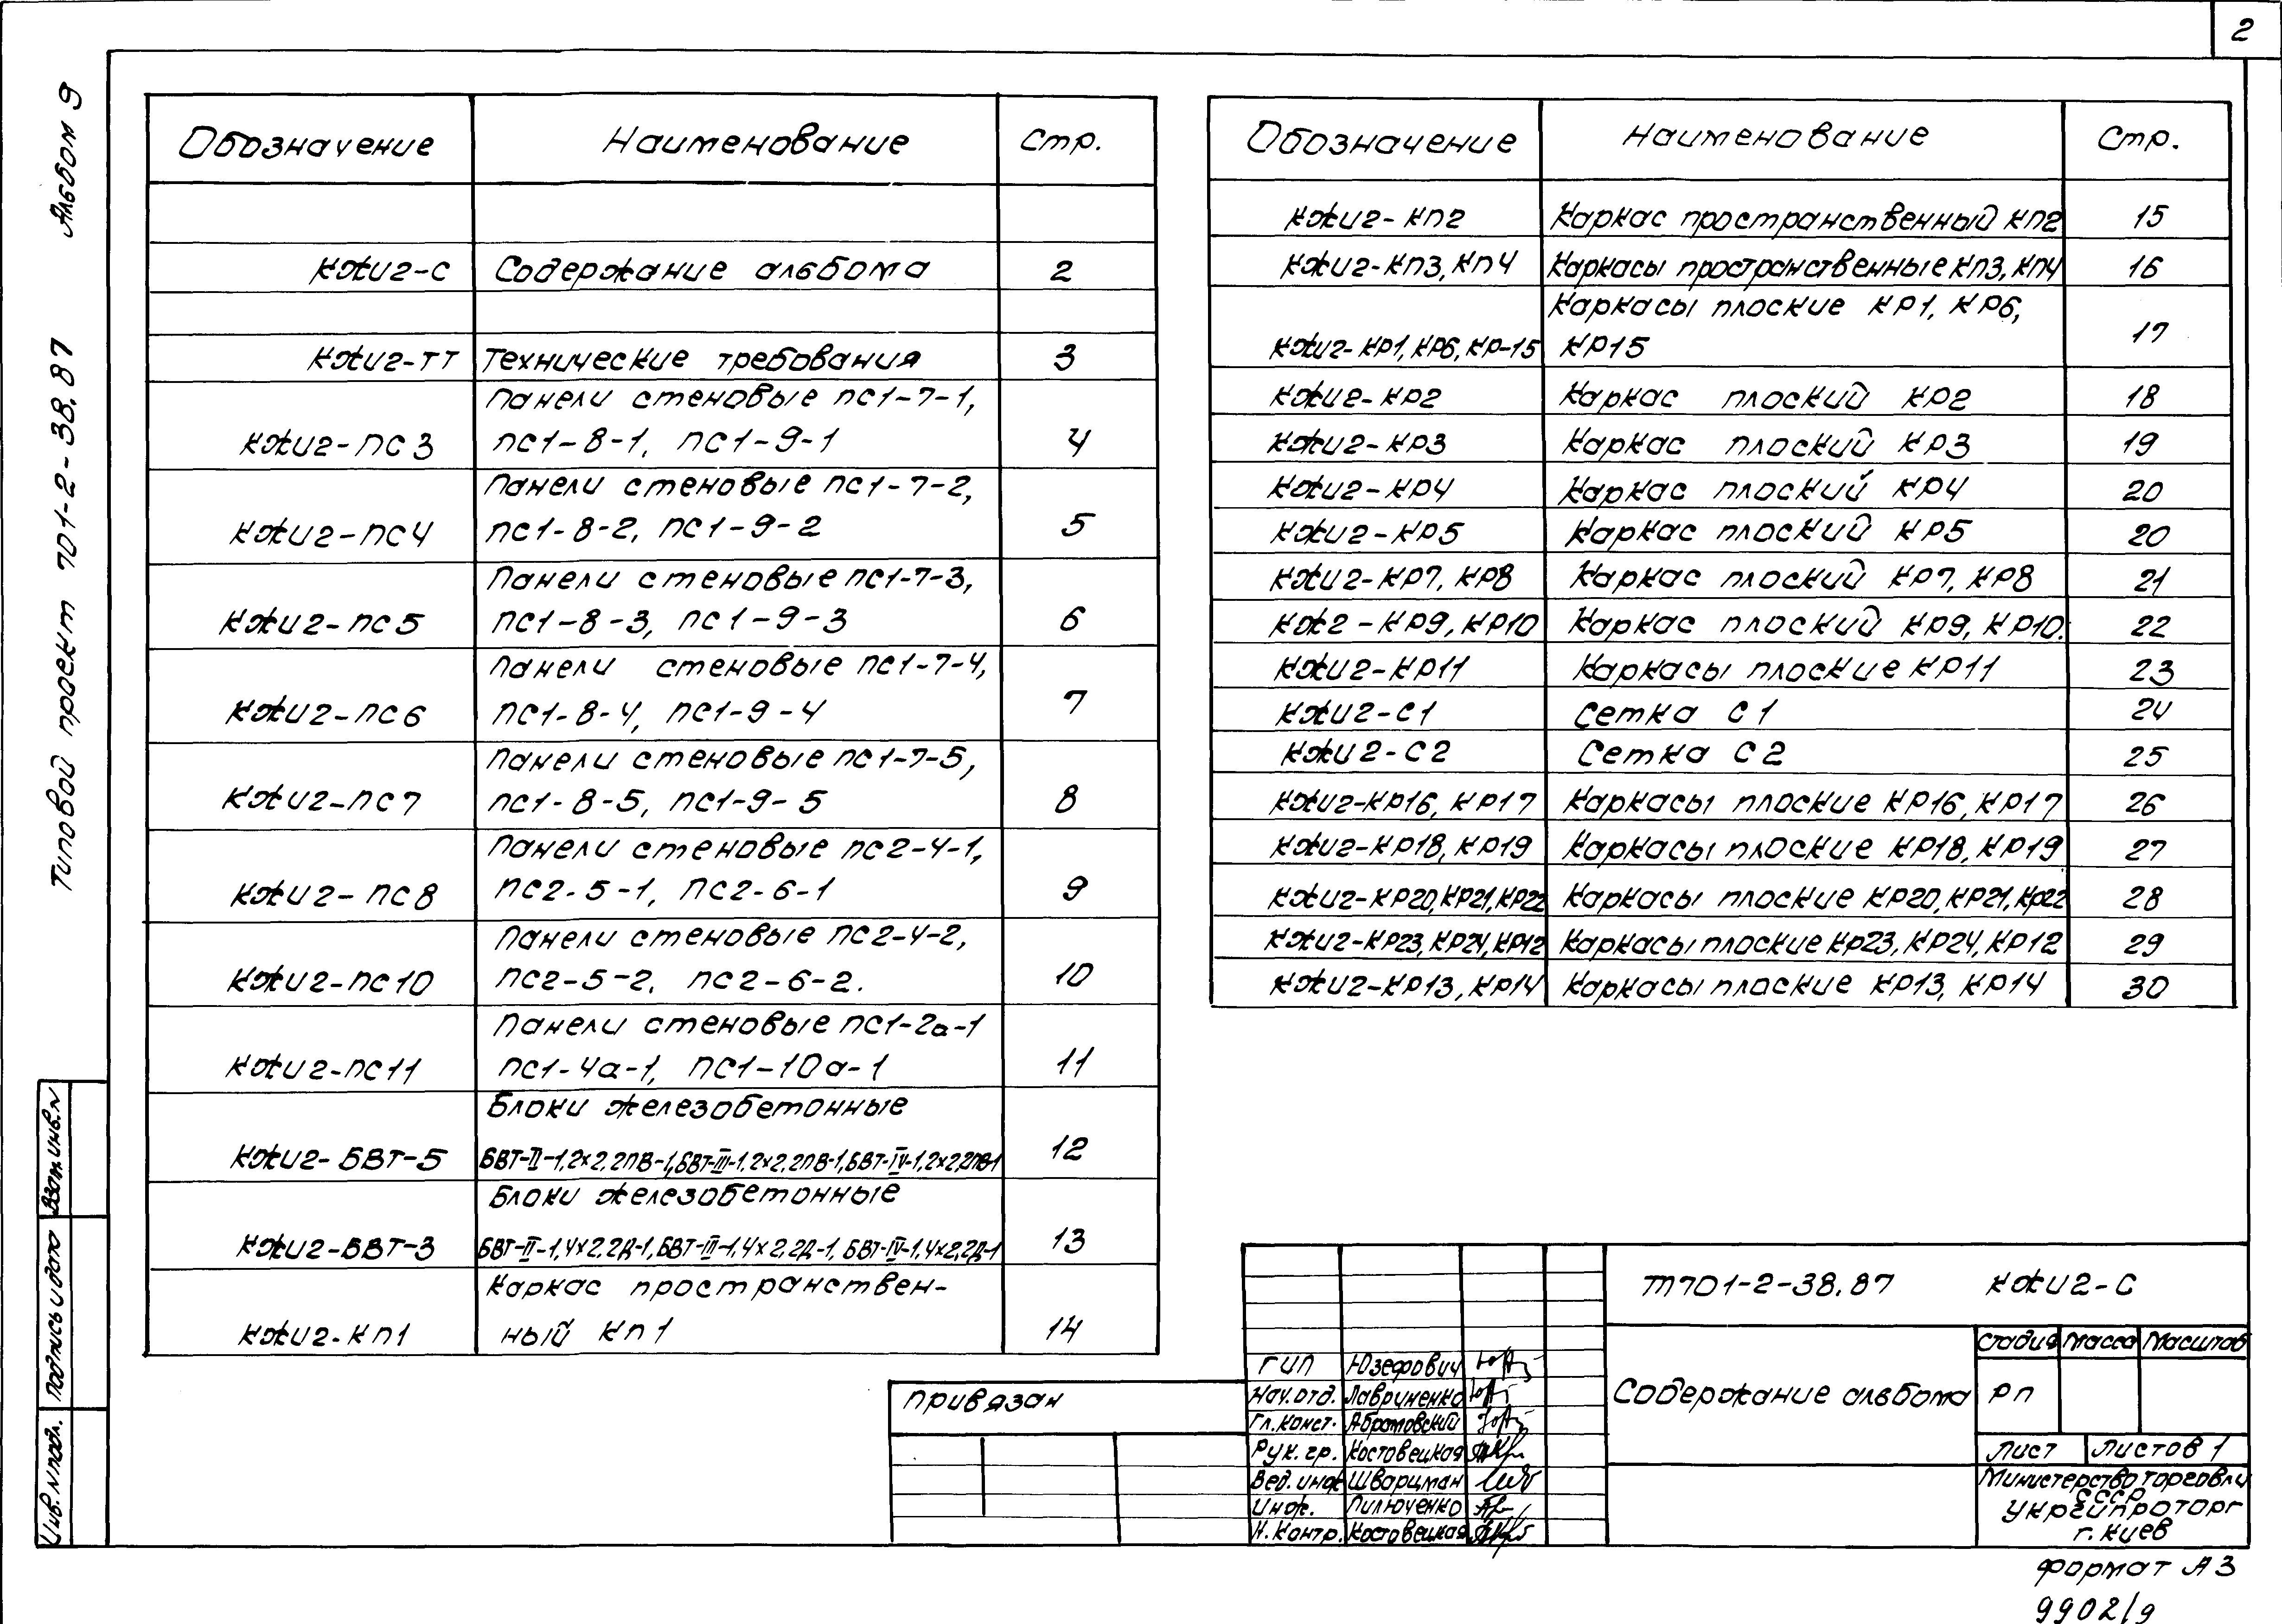 2
Альбом 9
Типовой проект 701-2-38.87
Обозначение Наименование Стр.
КЖИ2-С Содержание альбома 2
КЖИ2-ТТ Технические требования 3
Панели стеновые ПС1-7-1,
КЖИ2-ПС3 ПС1-8-1, ПС1-9-1 4
Панели стеновые ПС1-7-2,
КЖИ2-ПС4 ПС1-8-2, ПС1-9-2 5
Панели стеновые ПС1-7-3,
КЖИ2-ПС5 ПС1-8-3, ПС1-9-3 6
Панели стеновые ПС1-7-4,
КЖИ2-ПС6 ПС1-8-4, ПС1-9-4 7
Панели стеновые ПС1-7-5,
КЖИ2-ПС7 ПС1-8-5, ПС1-9-5 8
Панели стеновые ПС2-4-1,
КЖИ2-ПС8 ПС2-5-1, ПС2-6-1 9
Панели стеновые ПС2-4-2,
КЖИ2-ПС10 ПС2-5-2, ПС2-6-2. 10
Панели стеновые ПС1-2а-1
КЖИ2-ПС11 ПС1-4а-1, ПС1-10а-1 11
Блоки железобетонные
КЖИ2-БВТ-5 БВТ-II-1,2×2,2ПВ-1, БВТ-III-1,2×2,2ПВ-1, БВТ-IV-1,2×2,2ПВ-1 12
Блоки железобетонные
КЖИ2-БВТ-3 БВТ-II-1,4×2,2Д-1, БВТ-III-1,4×2,2Д-1, БВТ-IV-1,4×2,2Д-1 13
Каркас пространствен-
КЖИ2-КП1 ный КП1 14
Обозначение Наименование Стр.
КЖИ2-КП2 Каркас пространственный КП2 15
КЖИ2-КП3, КП4 Каркасы пространственные КП3, КП4 16
Каркасы плоские КР1, КР6,
КЖИ2-КР1, КР6, КР-15 КР15 17
КЖИ2-КР2 Каркас плоский КР2 18
КЖИ2-КР3 Каркас плоский КР3 19
КЖИ2-КР4 Каркас плоский КР4 20
КЖИ2-КР5 Каркас плоский КР5 20
КЖИ2-КР7, КР8 Каркас плоский КР7, КР8 21
КЖ2-КР9, КР10 Каркас плоский КР9, КР10. 22
КЖИ2-КР11 Каркасы плоские КР11 23
КЖИ2-С1 Сетка С1 24
КЖИ2-С2 Сетка С2 25
КЖИ2-КР16, КР17 Каркасы плоские КР16, КР17 26
КЖИ2-КР18, КР19 Каркасы плоские КР18, КР19 27
КЖИ2-КР20, КР21, КР22 Каркасы плоские КР20, КР21, КР22 28
КЖИ2-КР23, КР24, КР12 Каркасы плоские КР23, КР24, КР12 29
КЖИ2-КР13, КР14 Каркасы плоские КР13, КР14 30
Взам инв.N
Подпись и дата
Инв. N подл.
Привязан
ТП701-2-38.87 КЖИ2-С
Стадия Масса Масштаб
Содержание альбома РП
Лист Листов 1
Министерство торговли
СССР
УКРГИПРОТОРГ
г. Киев
ГИП Юзефович
Нач.отд. Лавриненко
Гл.конст. Абрамовский
Рук. гр. Костовецкая
Вед. инж Шварцман
Инж. Пилюченко
Н.Контр. Костовецкая
Формат А3
9902/9